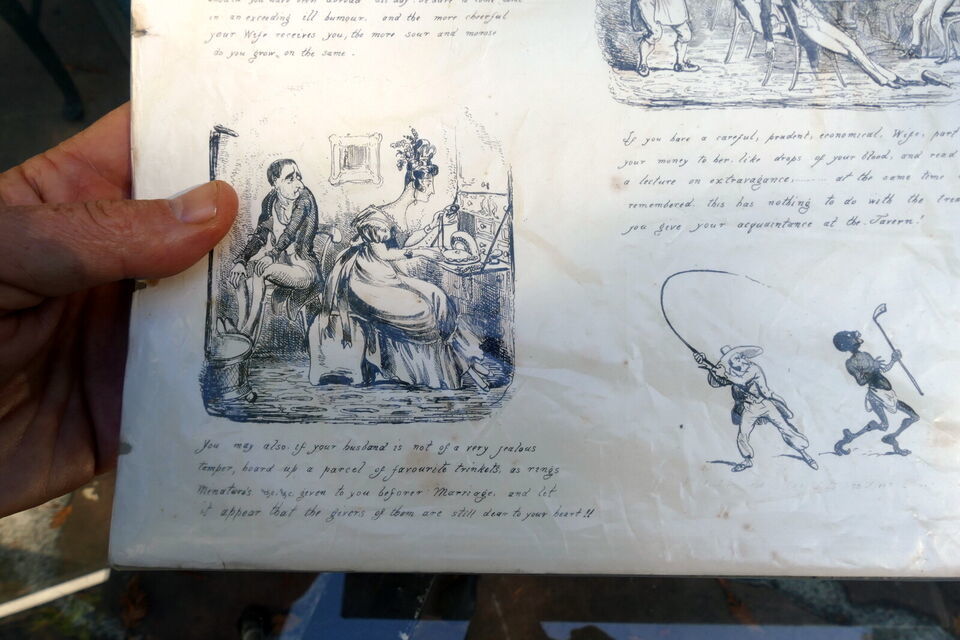 in an exceeding ill humour, and the more cheerful
your Wife receives you, the more sour and morose
do you grow, on the same.
If you have a careful, prudent, economical, Wife, part
your money to her, like drops of your blood, and read
a lecture on extravagance, ........ at the same time
remembered, this has nothing to do with the
you give your acquaintance at the Tavern!
You may also, if your husband is not of a very jealous
temper, hoard up a parcel of favourite trinkets, as rings
given to you beforer Marriage, and let
it appear that the givers of them are still dear to your heart!!